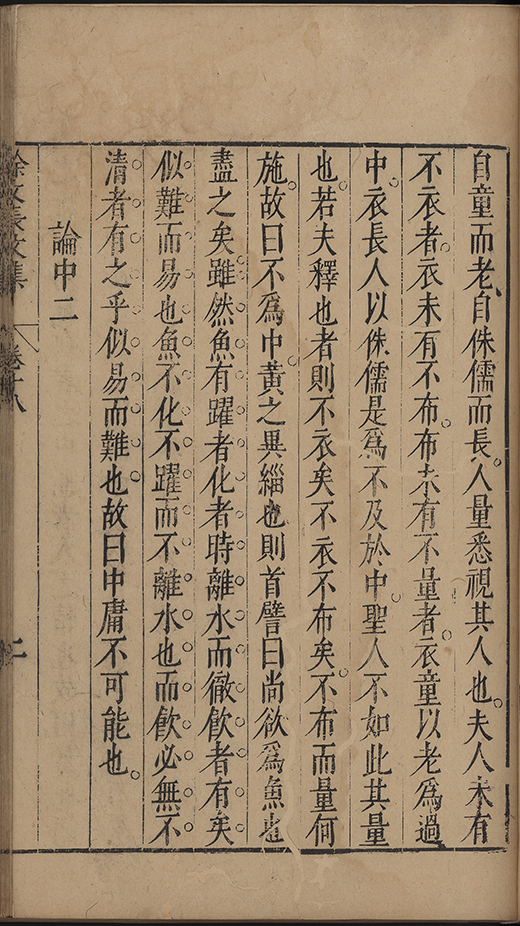 自童而老自侏儒而長人量悉視其人也夫人未有
不衣者衣未有不布布未有不量者衣童以老爲過
中衣長人以侏儒是爲不及於中聖人不如此其量
也若夫釋也者則不衣矣不衣不布矣不布而量何
施故曰不爲中黃之異緇也則首譬曰尚欲爲魚也
盡之矣雖然魚有躍者化者時離水而徹飲者有矣
似難而易也魚不化不躍而不離水也而飲必無不
清者有之乎似易而難也故曰中庸不可能也
論中二
徐文長文集 卷十八 二